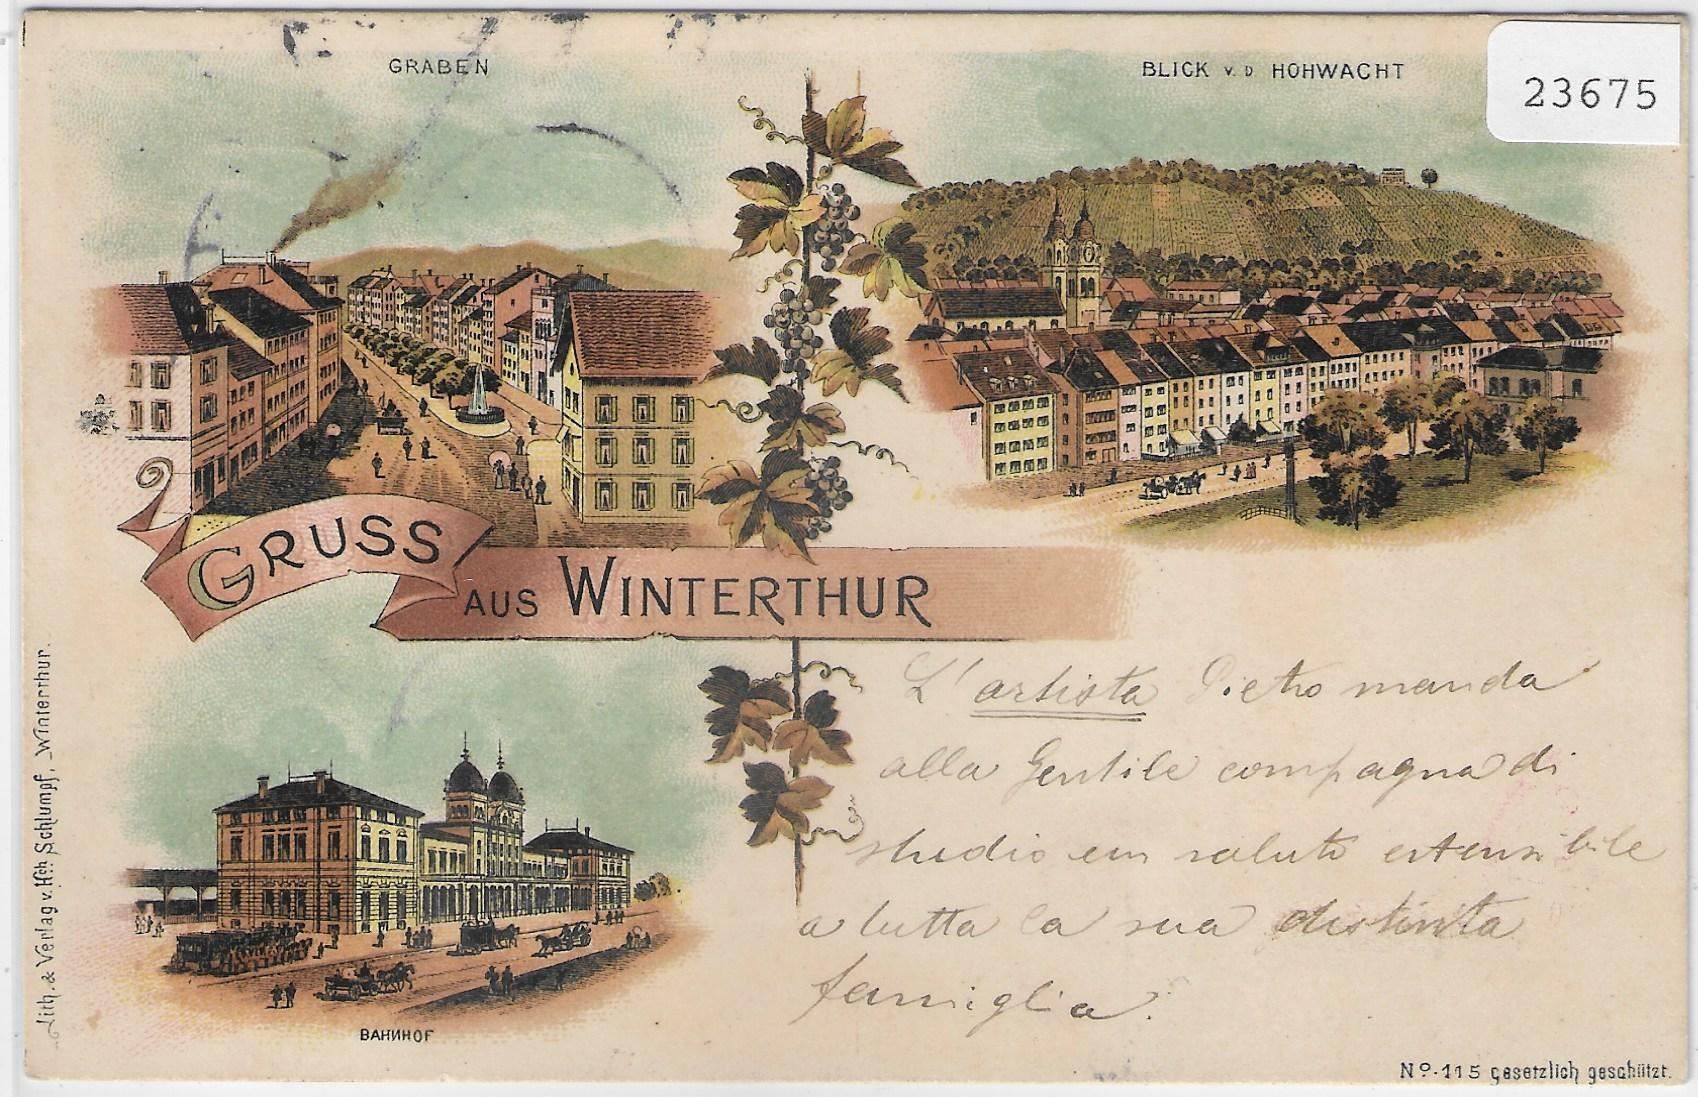 GRABEN
BLICK V. D HOHWACHT
23675
GRUSS
AUS WINTERTHUR
L'artista Pietro manda
alla Gentile compagna di
studio un saluto estensibile
a tutta la sua distinta
famiglia.
BAHNHOF
Lith. & Verlag v. Hch. Schlumpf, Winterthur.
No. 115 gesetzlich geschützt.